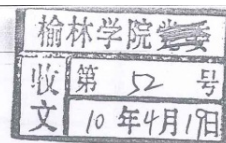 榆林学院
收文
第 52 号
10年4月19日